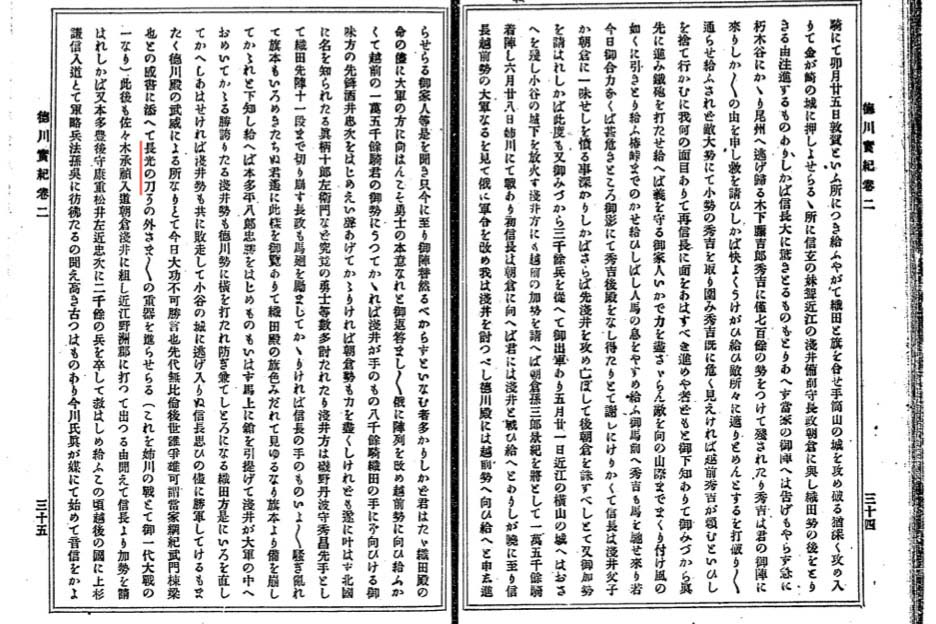 徳川實紀卷二
三十四
騎にて卯月廿五日敦賀といふ所につき給ふやがて織田と旗を合せ手筒山の城を攻め破る猶深く攻め入
りて金が崎の城に押しよせらるゝ所に信玄の妹聟近江の淺井備前守長政朝倉に與し織田勢の後をとり
きる由注進するものありしかば信長大に驚きとるものもとりあへず當家の御陣へは告げもやらず急に
朽木谷にかゝり尾州へ逃げ歸る木下藤吉郎秀吉に僅七百餘の勢をつけて殘されたり秀吉は君の御陣に
來りしか〴〵の由を申し救を請ひしかば快くうけがひ給ひ敵所々に遮りとめんとするを打破り〳〵
通らせ給ふされど敵大勢にて小勢の秀吉を取り圍み秀吉既に危く見えければ越前秀吉が頼むといひし
を捨て行かむに我何の面目ありて再信長に面をあはすべき進めや者どもと御下知ありて御みづから眞
先に進み鐵砲を打たせ給へば義を守る御家人いかで力を盡さゞらん敵を向の山際までまくり付け風の
如くに引きとり給ふ椿峠までのかせ給ひしばし人馬の息をやすめ給ふ御馬前へ秀吉も馬を馳せ來り若
今日御合力なくば甚危きところ御影にて秀吉後殿をなし得たりとて謝しにけりかくて信長は淺井父子
か朝倉に一味せしを憤る事深かりしかばさらば先淺井を攻め亡ぼして後朝倉を誅すべしとて又御加勢
を請はれしかば此度も又御みづから三千餘兵を從へて御出軍あり五月廿一日近江の橫山の城へはおさ
へを殘し小谷の城下を放火す淺井方にも越前の加勢を請へば朝倉孫三郎景紀を將として一萬五千餘騎
着陣し六月廿八日姉川にて戰あり初信長は朝倉に向へば君には淺井と戰ひ給へとありしが曉に至り信
長越前勢の大軍なるを見て俄に軍令を改め我は淺井を討つべし徳川殿には越前勢へ向ひ給へと申し進
らせらる御家人等是を聞き只今に至り御陣替然るべからずといなむ者多かりしかど君はたゞ織田殿の
命の儘に大軍の方に向はんこそ勇士の本意なれと御返答まし〳〵俄に陣列を改め越前勢に向ひ給ふか
くて越前の一萬五千餘騎君の御勢にうつてかゝれば淺井が手のもの八千餘騎織田の手にぞ向ひける御
味方の先鋒酒井忠次をはじめえい聲あげてかゝりければ朝倉勢も力を盡くしけれども遂に叶はず北國
に名を知られたる眞柄十郎左衞門など究竟の勇士等數多討たれたり淺井方は磯野丹波守秀昌先手とし
て織田先陣十一段まで切り崩す長政も馬廻を勵ましてかゝりければ信長の手のものいよ〳〵騷ぎ亂れ
て旗本もいろめきたちぬ君遙に此樣を御覽ありて織田殿の旗色みだれて見ゆるなり旗本より備を崩し
てかゝれと下知し給へば本多平八郎忠勝をはじめものもいはず馬上に鎗を引提げて淺井が大軍の中へ
おめいてかゝる勝誇りたる淺井勢も德川勢に橫を打たれ防ぎ兼てしどろになる織田方是にいろを直し
てかへしあはせければ淺井勢も共に敗走して小谷の城に逃げ入りぬ信長思ひの儘に勝軍してけるもま
たく德川殿の武威による所なりとて今日大功不可勝言也先代無比倫後世誰爭雄可謂當家綱紀武門棟梁
也との感書に添へて長光の刀その外さま〴〵の重器を進らせらる(これを姉川の戰とて御一代大戰の
一なり)此後も佐々木承禎入道朝倉淺井に組し近江野洲郡に打つて出づる由聞えて信長より加勢を請
はれしかば又本多豐後守康重松井左近忠次に二千餘の兵を卒して救はしめ給ふこの頃越後の國に上杉
謙信入道とて軍略兵法孫吳に彷彿たるの聞え高き古つはものあり今川氏眞が媒にて始めて音信をかよ
徳川實紀卷二
三十五